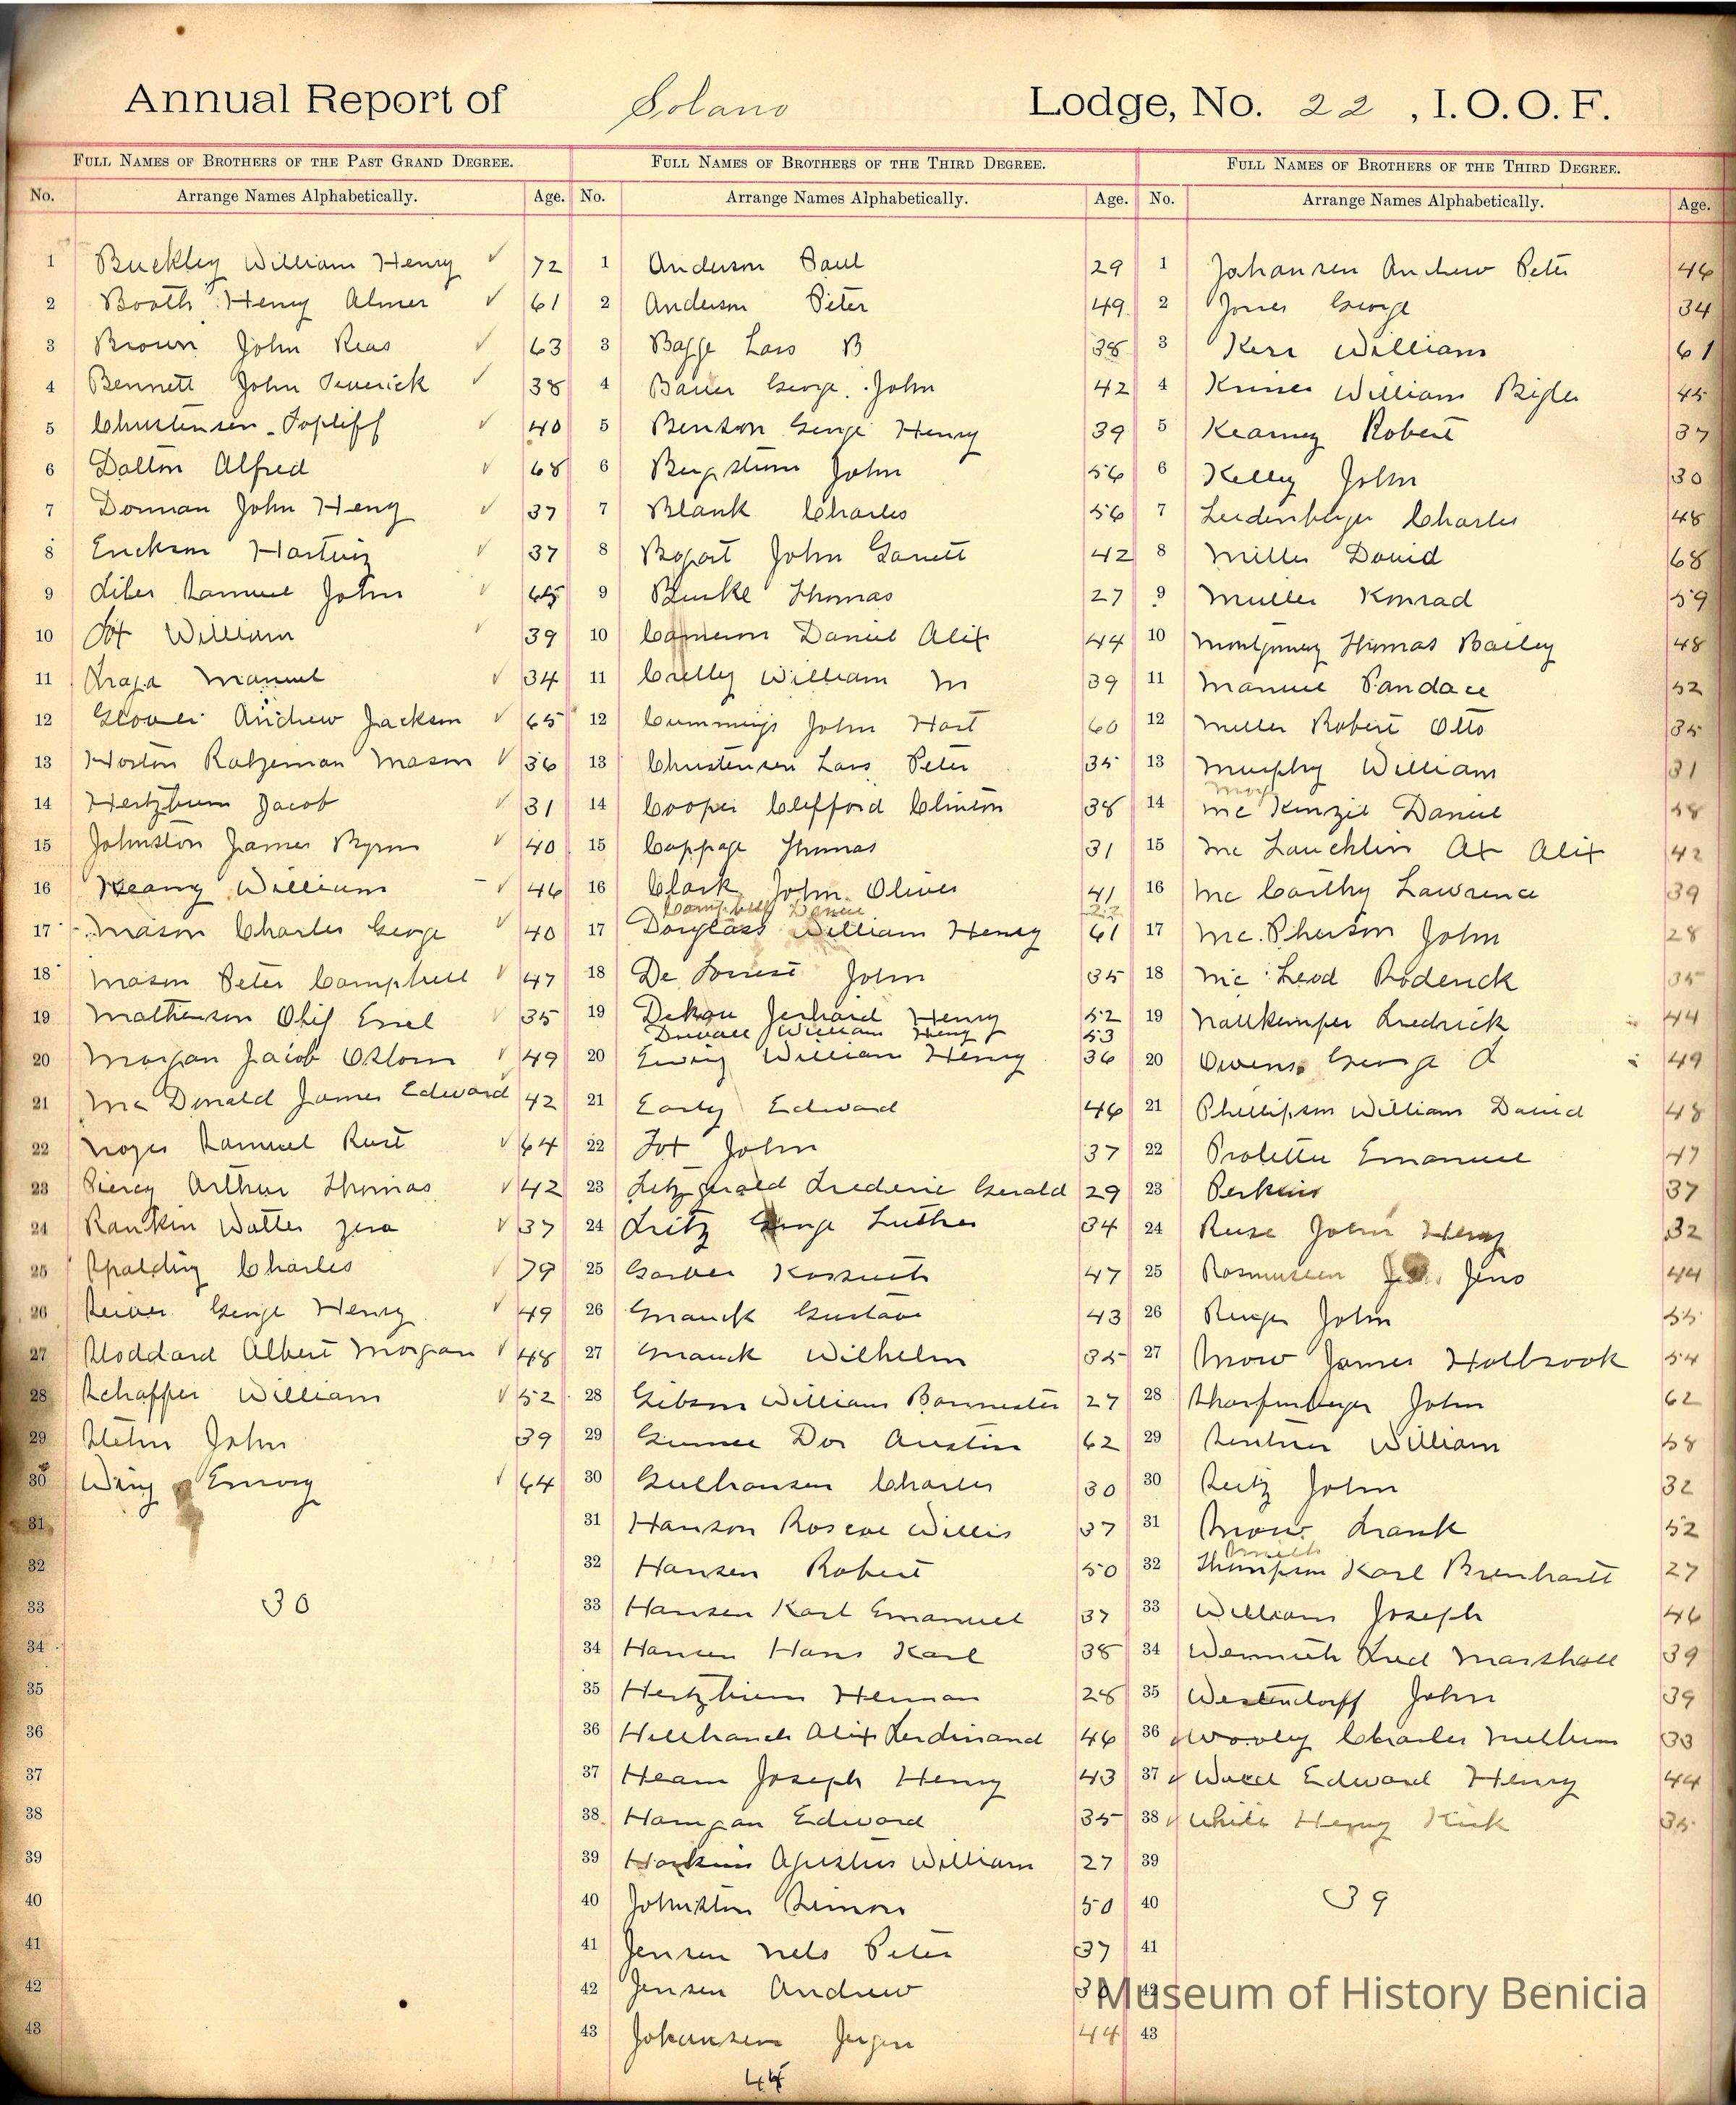 Annual Report of Solano Lodge, No. 22, I.O.O.F.
Full Names of Brothers of the Past Grand Degree.
No. Arrange Names Alphabetically. Age.
1 Buckley William Henry ✓ 72
2 Booth Henry Almer ✓ 61
3 Brown John Reas ✓ 63
4 Bennett John ✓ 38
5 Christensen Topliff ✓ 40
6 Dalton Alfred ✓ 68
7 Donnan John Henry ✓ 37
8 Erickson Hartwig ✓ 37
9 Samuel John ✓
10 Fox William ✓ 39
11 Fraga Manuel ✓ 34
12 Glover Andrew Jackson ✓ 65
13 Horton Mason ✓ 36
14 Hertzbum Jacob ✓ 31
15 Johnston James Byron ✓ 40
16 William ✓ 46
17 Mason Charles George ✓ 40
18 Mason Peter Campbell ✓ 47
19 Olif ✓ 35
20 Morgan Jacob Osborn ✓ 49
21 Mc Donald James Edward 42
22 Noyes Samuel Rust ✓ 64
23 Piercy Arthur Thomas ✓ 42
24 Rankin Walter ✓ 37
25 Spalding Charles ✓ 79
26 George Henry ✓ 49
27 Stoddard Albert Morgan ✓ 48
28 Schaffer William ✓ 52
29 Stehn John 39
30 Wing Emory ✓ 64
31
32
33 30
34
35
36
37
38
39
40
41
42
43
Full Names of Brothers of the Third Degree.
No. Arrange Names Alphabetically. Age.
1 Anderson Paul 29
2 Anderson Peter 49
3 Bagge Lars B 38
4 Bauer George John 42
5 Benson George Henry 39
6 Bergstrum John 56
7 Blank Charles 56
8 Bogart John Garrett 42
9 Burke Thomas 27
10 Cameron Daniel Alex 44
11 Crelly William M 39
12 Cummings John Hart 60
13 Christensen Lars Peter 35
14 Cooper Clifford Clinton 38
15 Cuppage Thomas 31
16 Clark John Oliver 41
Campbell Daniel 22
17 Douglass William Henry 61
18 De Forrest John 35
19 Dekau Jerhard Henry 52
Duvall William Henry 53
20 Ewing William Henry 36
21 Early Edward 46
22 Fox John 37
23 Fitzgerald Frederic Gerald 29
24 Fritz George Luther 34
25 Garber Kossuth 47
26 Gnauck Gustave 43
27 Gnauck Wilhelm 35
28 Gibson William Bannester 27
29 Gurnee Dor Austin 62
30 Gulhausen Charles 30
31 Hanson Roscoe Willis 37
32 Hansen Robert 50
33 Hansen Karl Emanuel 37
34 Hansen Hans Karl 38
35 Herman 28
36 Alex Ferdinand 46
37 Hearn Joseph Henry 43
38 Harrigan Edward 35
39 William 27
40 Johnston Simon 50
41 Jensen Nels Peter 37
42 Jensen Andrew
43 Johansen Jurgen 44
Full Names of Brothers of the Third Degree.
No. Arrange Names Alphabetically. Age.
1 Johansen Andrew Peter 46
2 Jones George 34
3 Kerr William 61
4 William Bigler 45
5 Kearney Robert 37
6 Kelley John 30
7 Leidenberger Charles 48
8 Miller David 68
9 Muller Konrad 59
10 Montgomery Thomas Bailey 48
11 Manuel Pandace 52
12 Miller Robert Otto 35
13 Murphy William 31
14 Mc Kenzie Daniel 58
15 Mc Lauchlin Alex 42
16 Mc Carthy Lawrence 39
17 Mc Pherson John 28
18 Mc Leod Roderick 35
19 Nallkemper Fredrick 44
20 Owens George F 49
21 Phillipson William David 48
22 Emanuel 47
23 Perkins 37
24 Ruse John Henry 32
25 Rasmussen Jens 44
26 Ruger John 55
27 Snow James Holbrook 54
28 Sharfenberger John 62
29 William 58
30 Seitz John 32
31 Snow Frank 52
Smith
32 Thompson Karl 27
33 Williams Joseph 46
34 Wermuth Fred Marshall 39
35 Westendorff John 39
36 ✓ Wooley Charles 33
37 ✓ Ward Edward Henry 44
38 ✓ White Henry Kirk 35
39
40 39
41
42
43
Museum of History Benicia